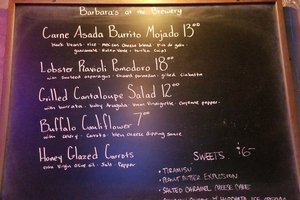 Barbara's at the Brewery
Carne Asada Burrito Mojado 13.00
black beans · rice · mexican cheese blend · pico de gallo ·
guacamole · salsa verde · tortilla chips
Lobster Ravioli Pomodoro 18.00
with sauteed asparagus · shaved parmesan · grilled ciabatta
Grilled Cantaloupe Salad 12.00
with burrata · baby arugula · vinaigrette · cayenne pepper
Buffalo Cauliflower 7.00
with celery · carrots · bleu cheese dipping sauce
Honey Glazed Carrots
extra virgin olive oil · salt · pepper
SWEETS $6-
· TIRAMISU
· PEANUT BUTTER EXPLOSION
· SALTED CARAMEL CHEESE CAKE